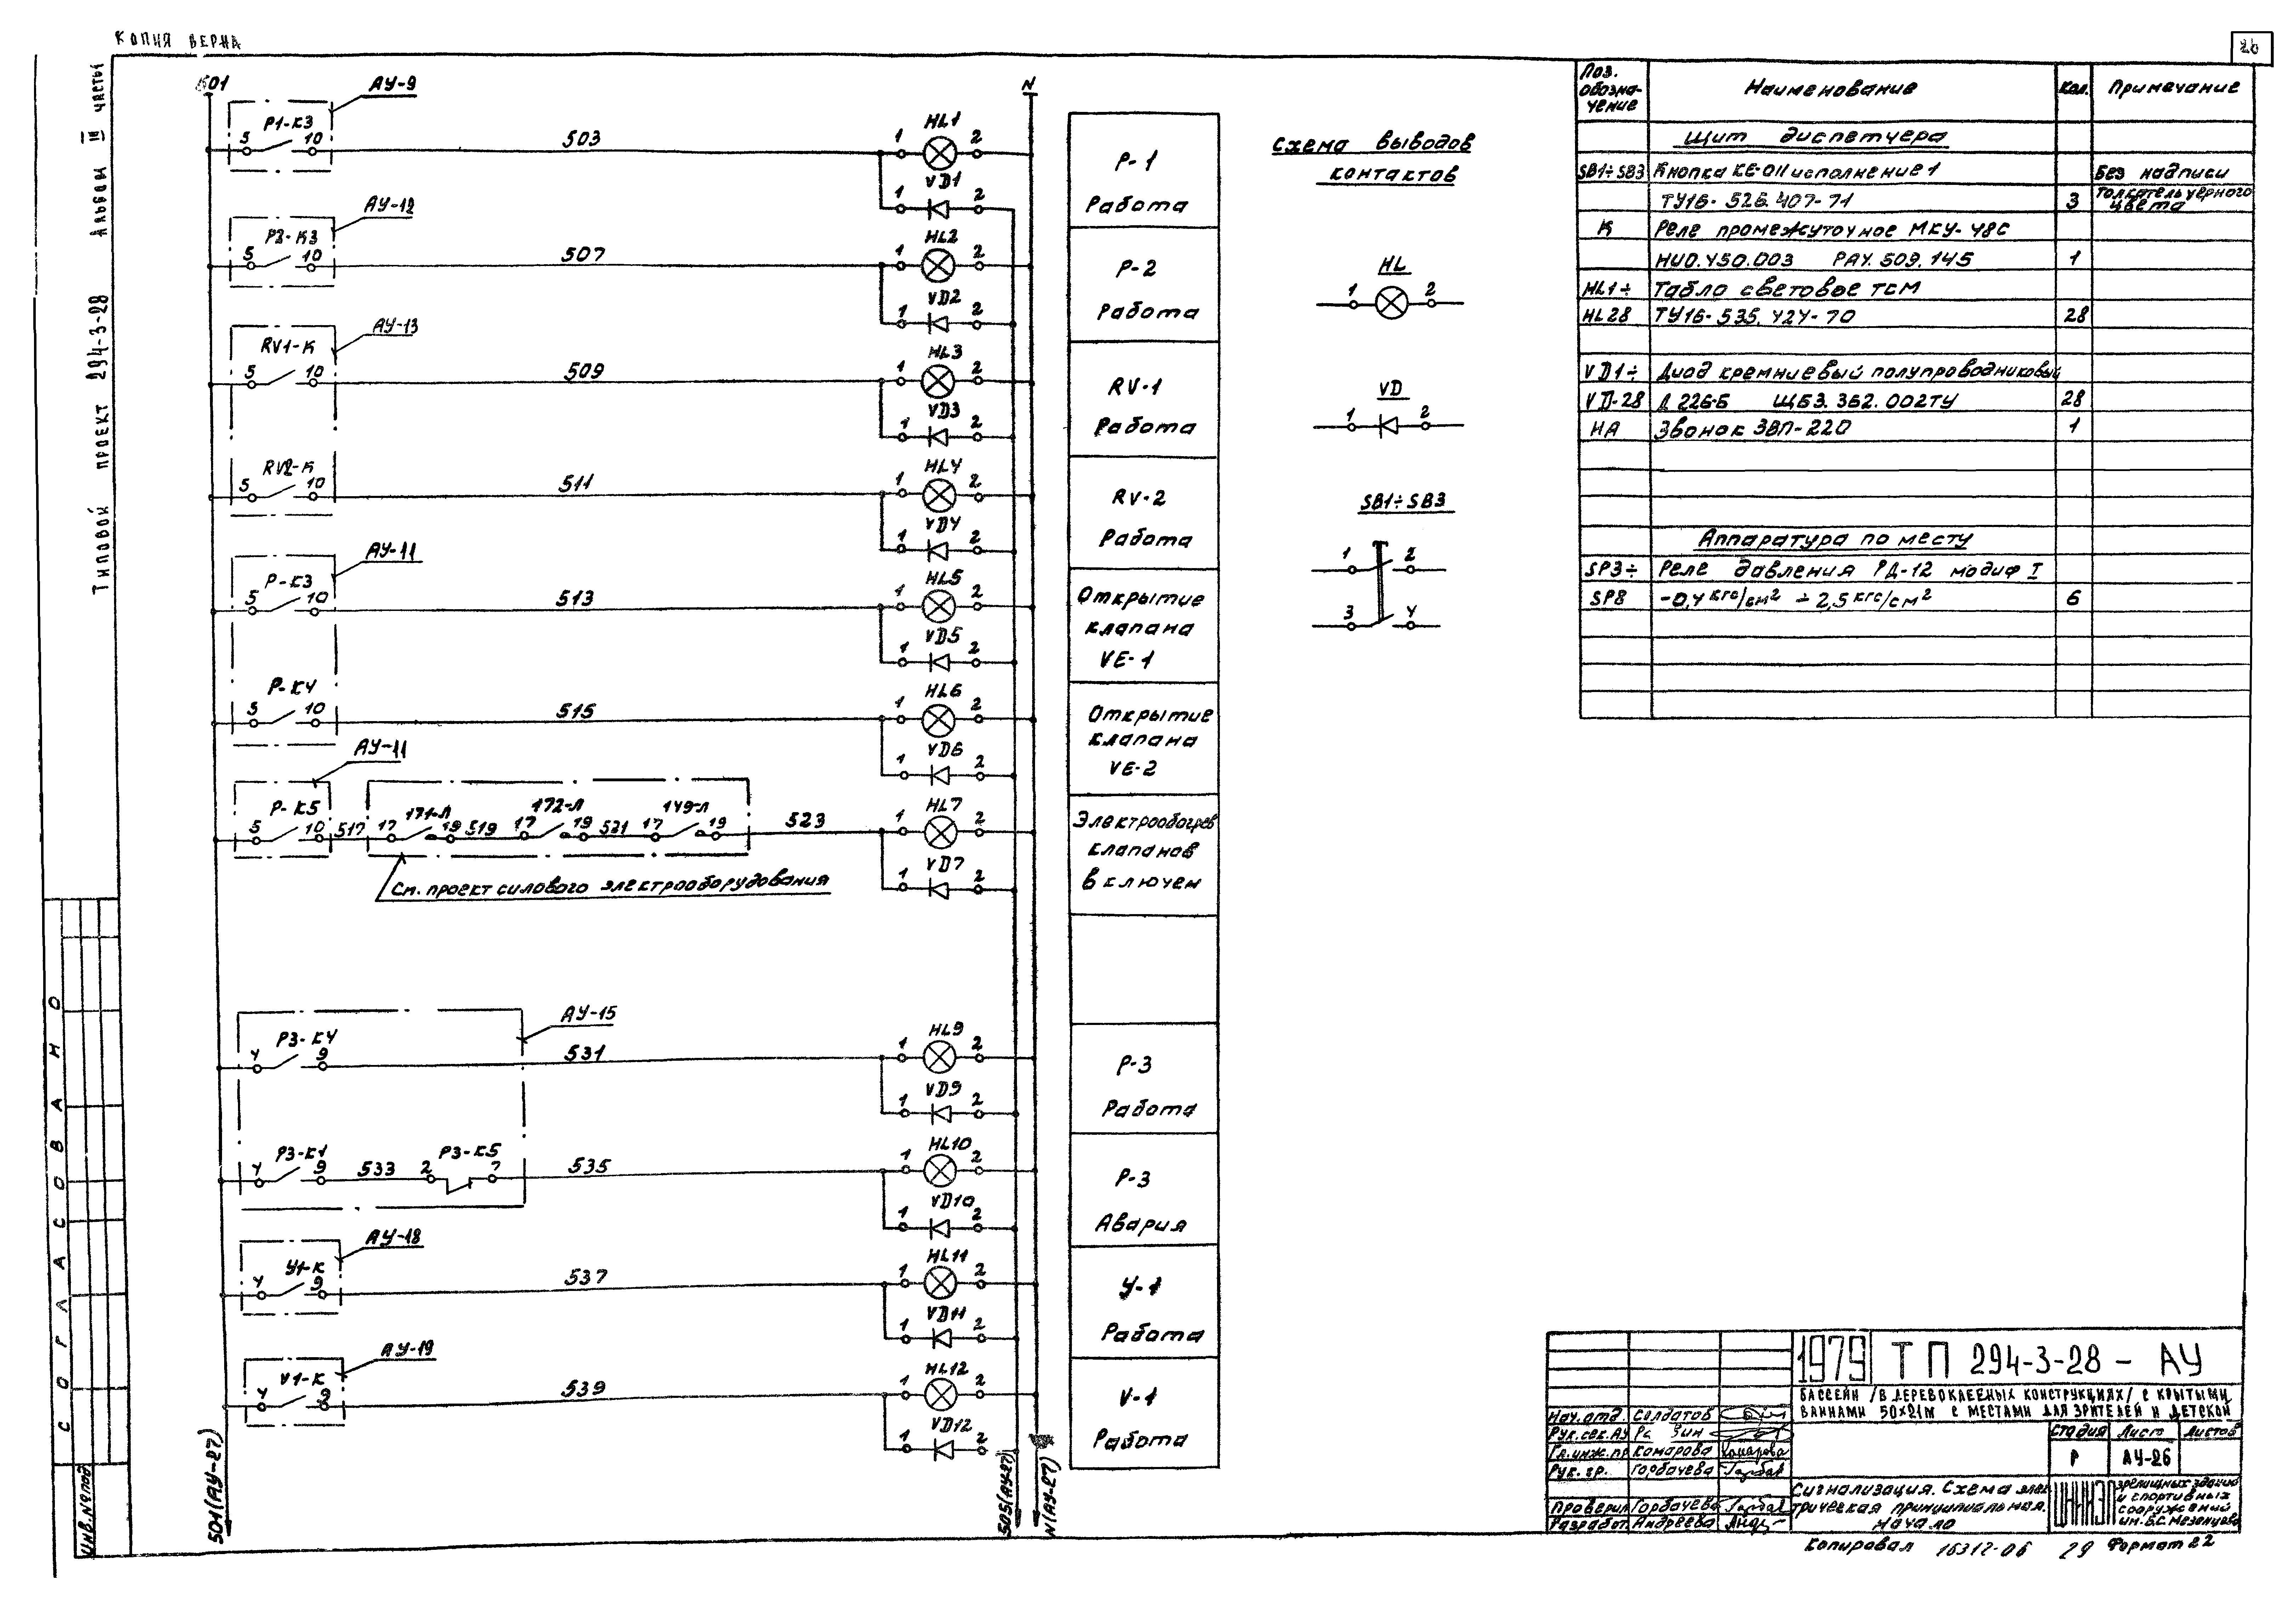 КОПИЯ ВЕРНА
26
Типовой проект 294-3-28 Альбом III часть 1
СОГЛАСОВАНО
Инв.№ под
501
N
АУ-9
Р1-К3
5 10
503
1 HL1 2
VD1
1 2
Р-1
Работа
АУ-12
Р2-К3
5 10
507
1 HL2 2
VD2
1 2
Р-2
Работа
АУ-13
RV1-К
5 10
509
1 HL3 2
VD3
1 2
RV-1
Работа
RV2-К
5 10
511
1 HL4 2
VD4
1 2
RV-2
Работа
АУ-11
Р-К3
5 10
513
1 HL5 2
VD5
1 2
Открытие
клапана
VE-1
Р-К4
5 10
515
1 HL6 2
VD6
1 2
Открытие
клапана
VE-2
АУ-11
Р-К5
5 10 517
17 171-Л 19 519
17 172-Л 19 521
17 149-Л 19
523
См. проект силового электрооборудования
1 HL7 2
VD7
1 2
Электрообогрев
клапанов
включен
АУ-15
Р3-К4
4 9
531
1 HL9 2
VD9
1 2
Р-3
Работа
Р3-К1
4 9
533
Р3-К5
2 7
535
1 HL10 2
VD10
1 2
Р-3
Авария
АУ-18
У1-К
4 9
537
1 HL11 2
VD11
1 2
У-1
Работа
АУ-19
V1-К
4 9
539
1 HL12 2
VD12
1 2
V-1
Работа
501(АУ-27)
505(АУ-27)
N(АУ-27)
Схема выводов
контактов
HL
1 2
VD
1 2
SB1÷SB3
1 2
3 4
Поз. обозна-чение Наименование Кол. Примечание
Щит диспетчера
SB1÷SB3 Кнопка КЕ-011 исполнение 1 Без надписи
ТУ16-526.407-71 3 Толкатель черного цвета
К Реле промежуточное МКУ-48С
РАУ.509.145 1
HL1÷ Табло световое ТСМ
HL28 ТУ16-535.424-70 28
VD1÷ Диод кремниевый полупроводниковый
VD-28 Д226Б ЩБ3.362.002ТУ 28
НА Звонок ЗВП-220 1
Аппаратура по месту
SP3÷ Реле давления РД-12 модиф I
SP8 -0,4 кгс/см² ÷ 2,5 кгс/см² 6
1979 ТП 294-3-28 - АУ
БАССЕЙН /В ДЕРЕВОКЛЕЕНЫХ КОНСТРУКЦИЯХ/ С КРЫТЫМИ
ВАННАМИ 50×21М С МЕСТАМИ ДЛЯ ЗРИТЕЛЕЙ И ДЕТСКОЙ
Нач.отд. Солдатов
Рук.сек.АУ
Гл.инж.пр Комарова
Рук.гр. Горбачева
Проверил Горбачева
Разработ. Андреева
Стадия Лист Листов
Р АУ-26
Сигнализация. Схема элек
трическая принципиальная.
Начало
ЦНИИЭП
зрелищных зданий
и спортивных
сооружений
им. Б.С. Мезенцева
Копировал 16312-06 29 Формат 22